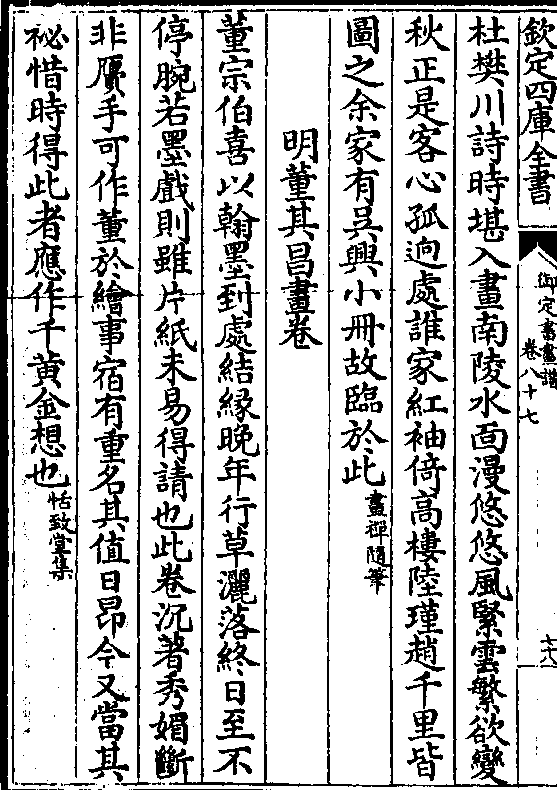 欽定四庫全書
御定書畫譜
卷八十七
六
杜樊川詩時堪入畫南陵水面漫悠悠風緊雲繁欲變
秋正是客心孤逈處誰家紅袖倚高樓陸瑾趙千里皆
圖之余家有吳興小冊故臨於此畫禪隨筆
明董其昌畫卷
董宗伯喜以翰墨到處結緣晚年行草灑落終日至不
停腕若墨戲則雖片紙未易得請也此卷沉著秀媚斷
非贋手可作董於繪事宿有重名其值日昂今又當其
祕惜時得此者應作千黃金想也恬致堂集